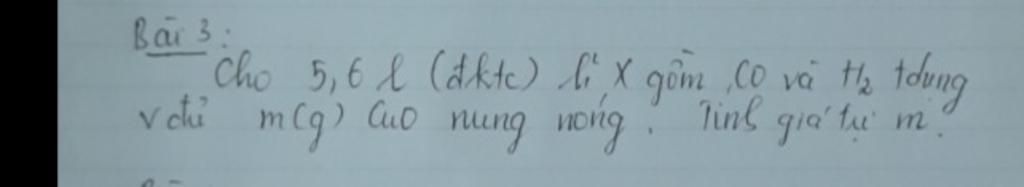 Bài 3:
Cho 5,6 l (đktc) hỗn X gồm CO và H2 tdụng
vđủ m(g) CuO nung nóng. Tính giá trị m.